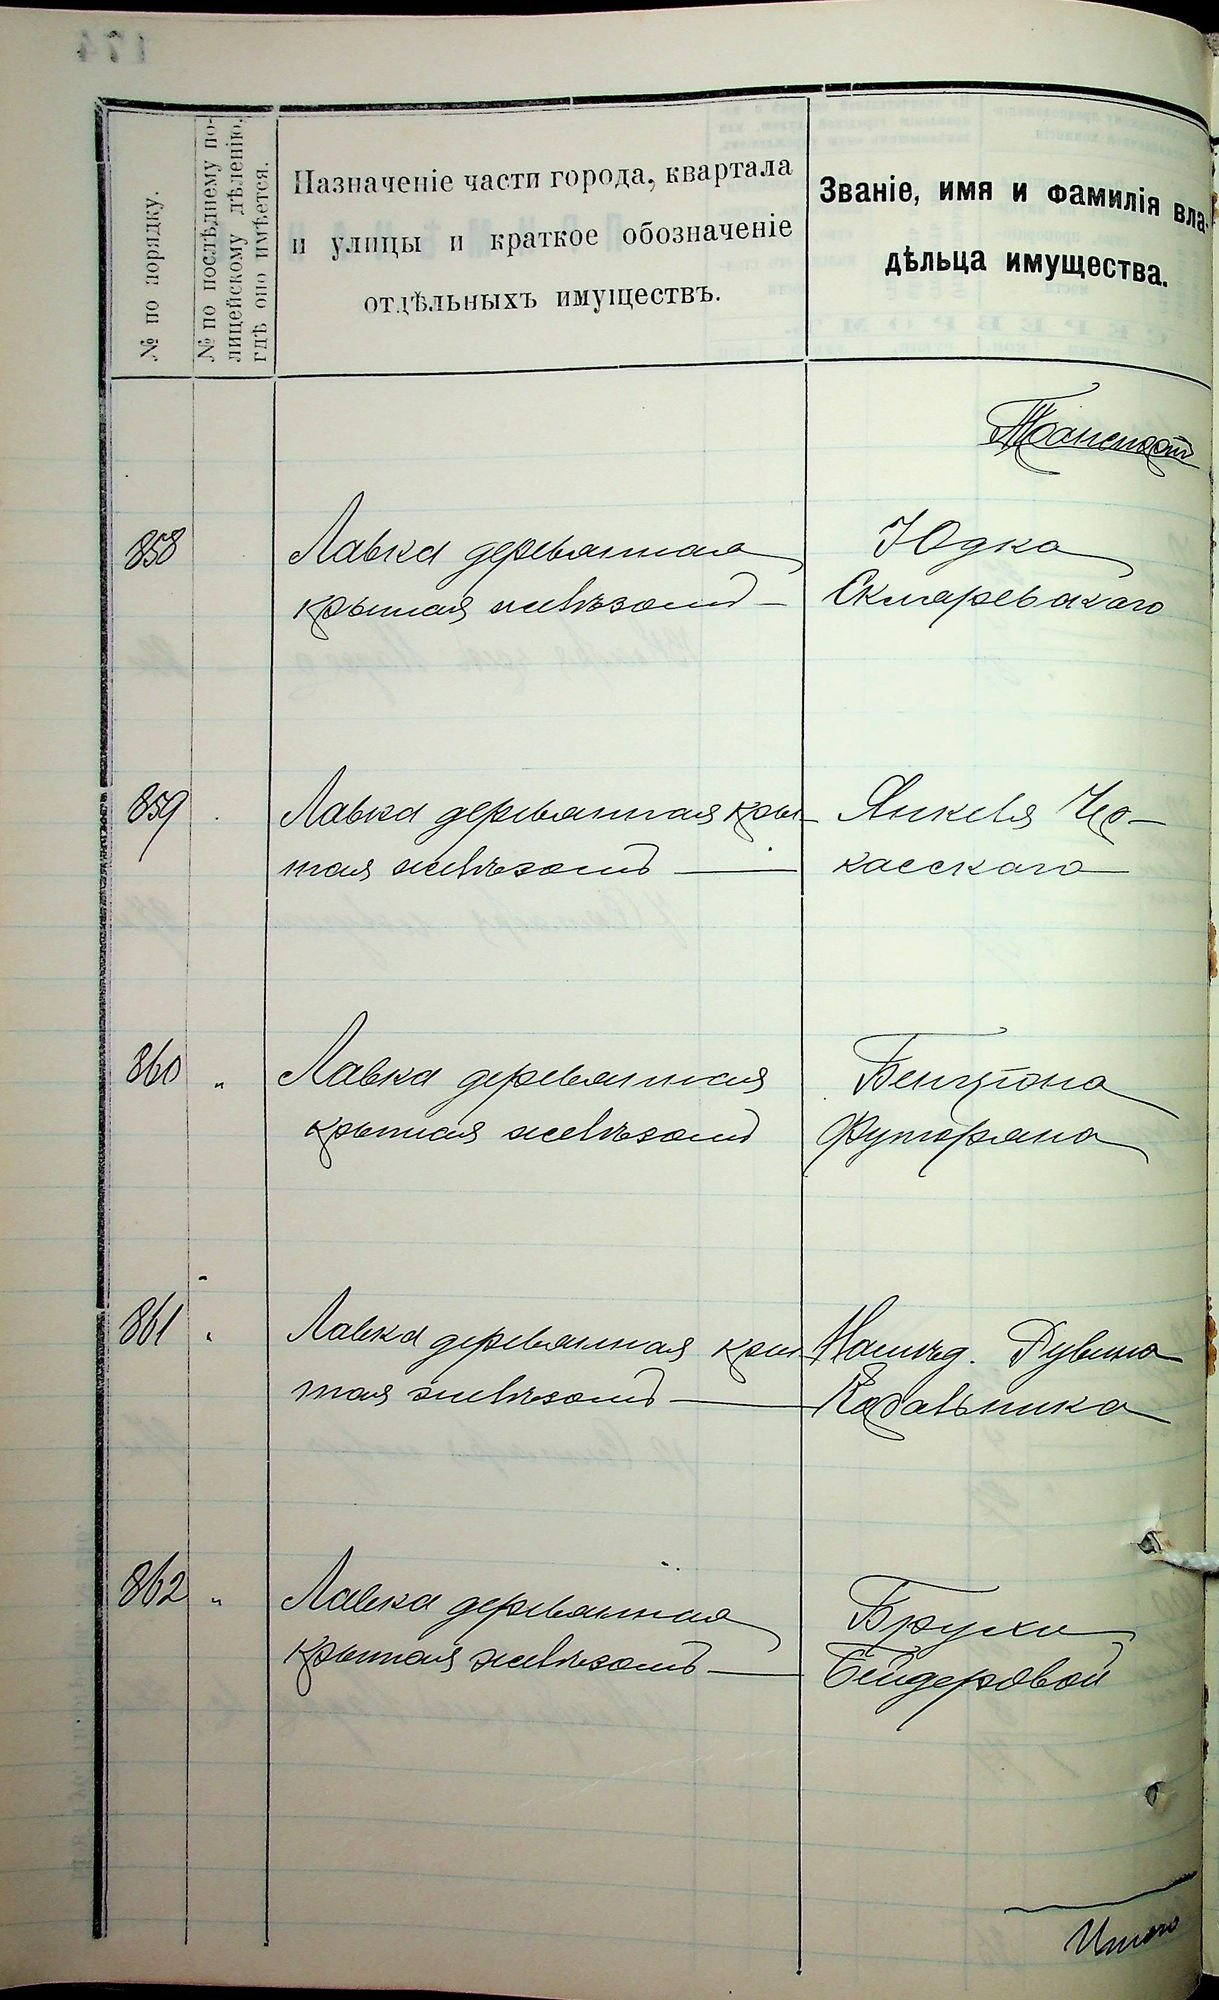 № по порядку.
№ по послѣднему по-
лицейскому дѣленію,
гдѣ оно имѣется.
Назначеніе части города, квартала
и улицы и краткое обозначеніе
отдѣльныхъ имуществъ.
Званіе, имя и фамилія вла-
дѣльца имущества.
Транспортъ
858
Лавка деревянная
крытая желѣзомъ –
Юдка
Скляревскаго
859
Лавка деревянная кры-
тая желѣзомъ —
Янкеля Чер-
касскаго
860 "
Лавка деревянная
крытая желѣзомъ
Бенціона
Футоряна
861 "
Лавка деревянная кры-
тая желѣзомъ —
Наслѣд. Дувина
862 "
Лавка деревянная
крытая желѣзомъ —
Брухи
Бендеровой
Итого